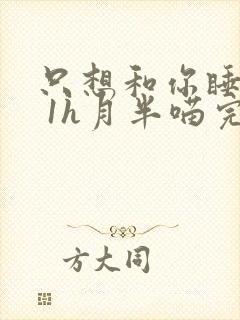 只想和你睡
1h月半喵完
方大同